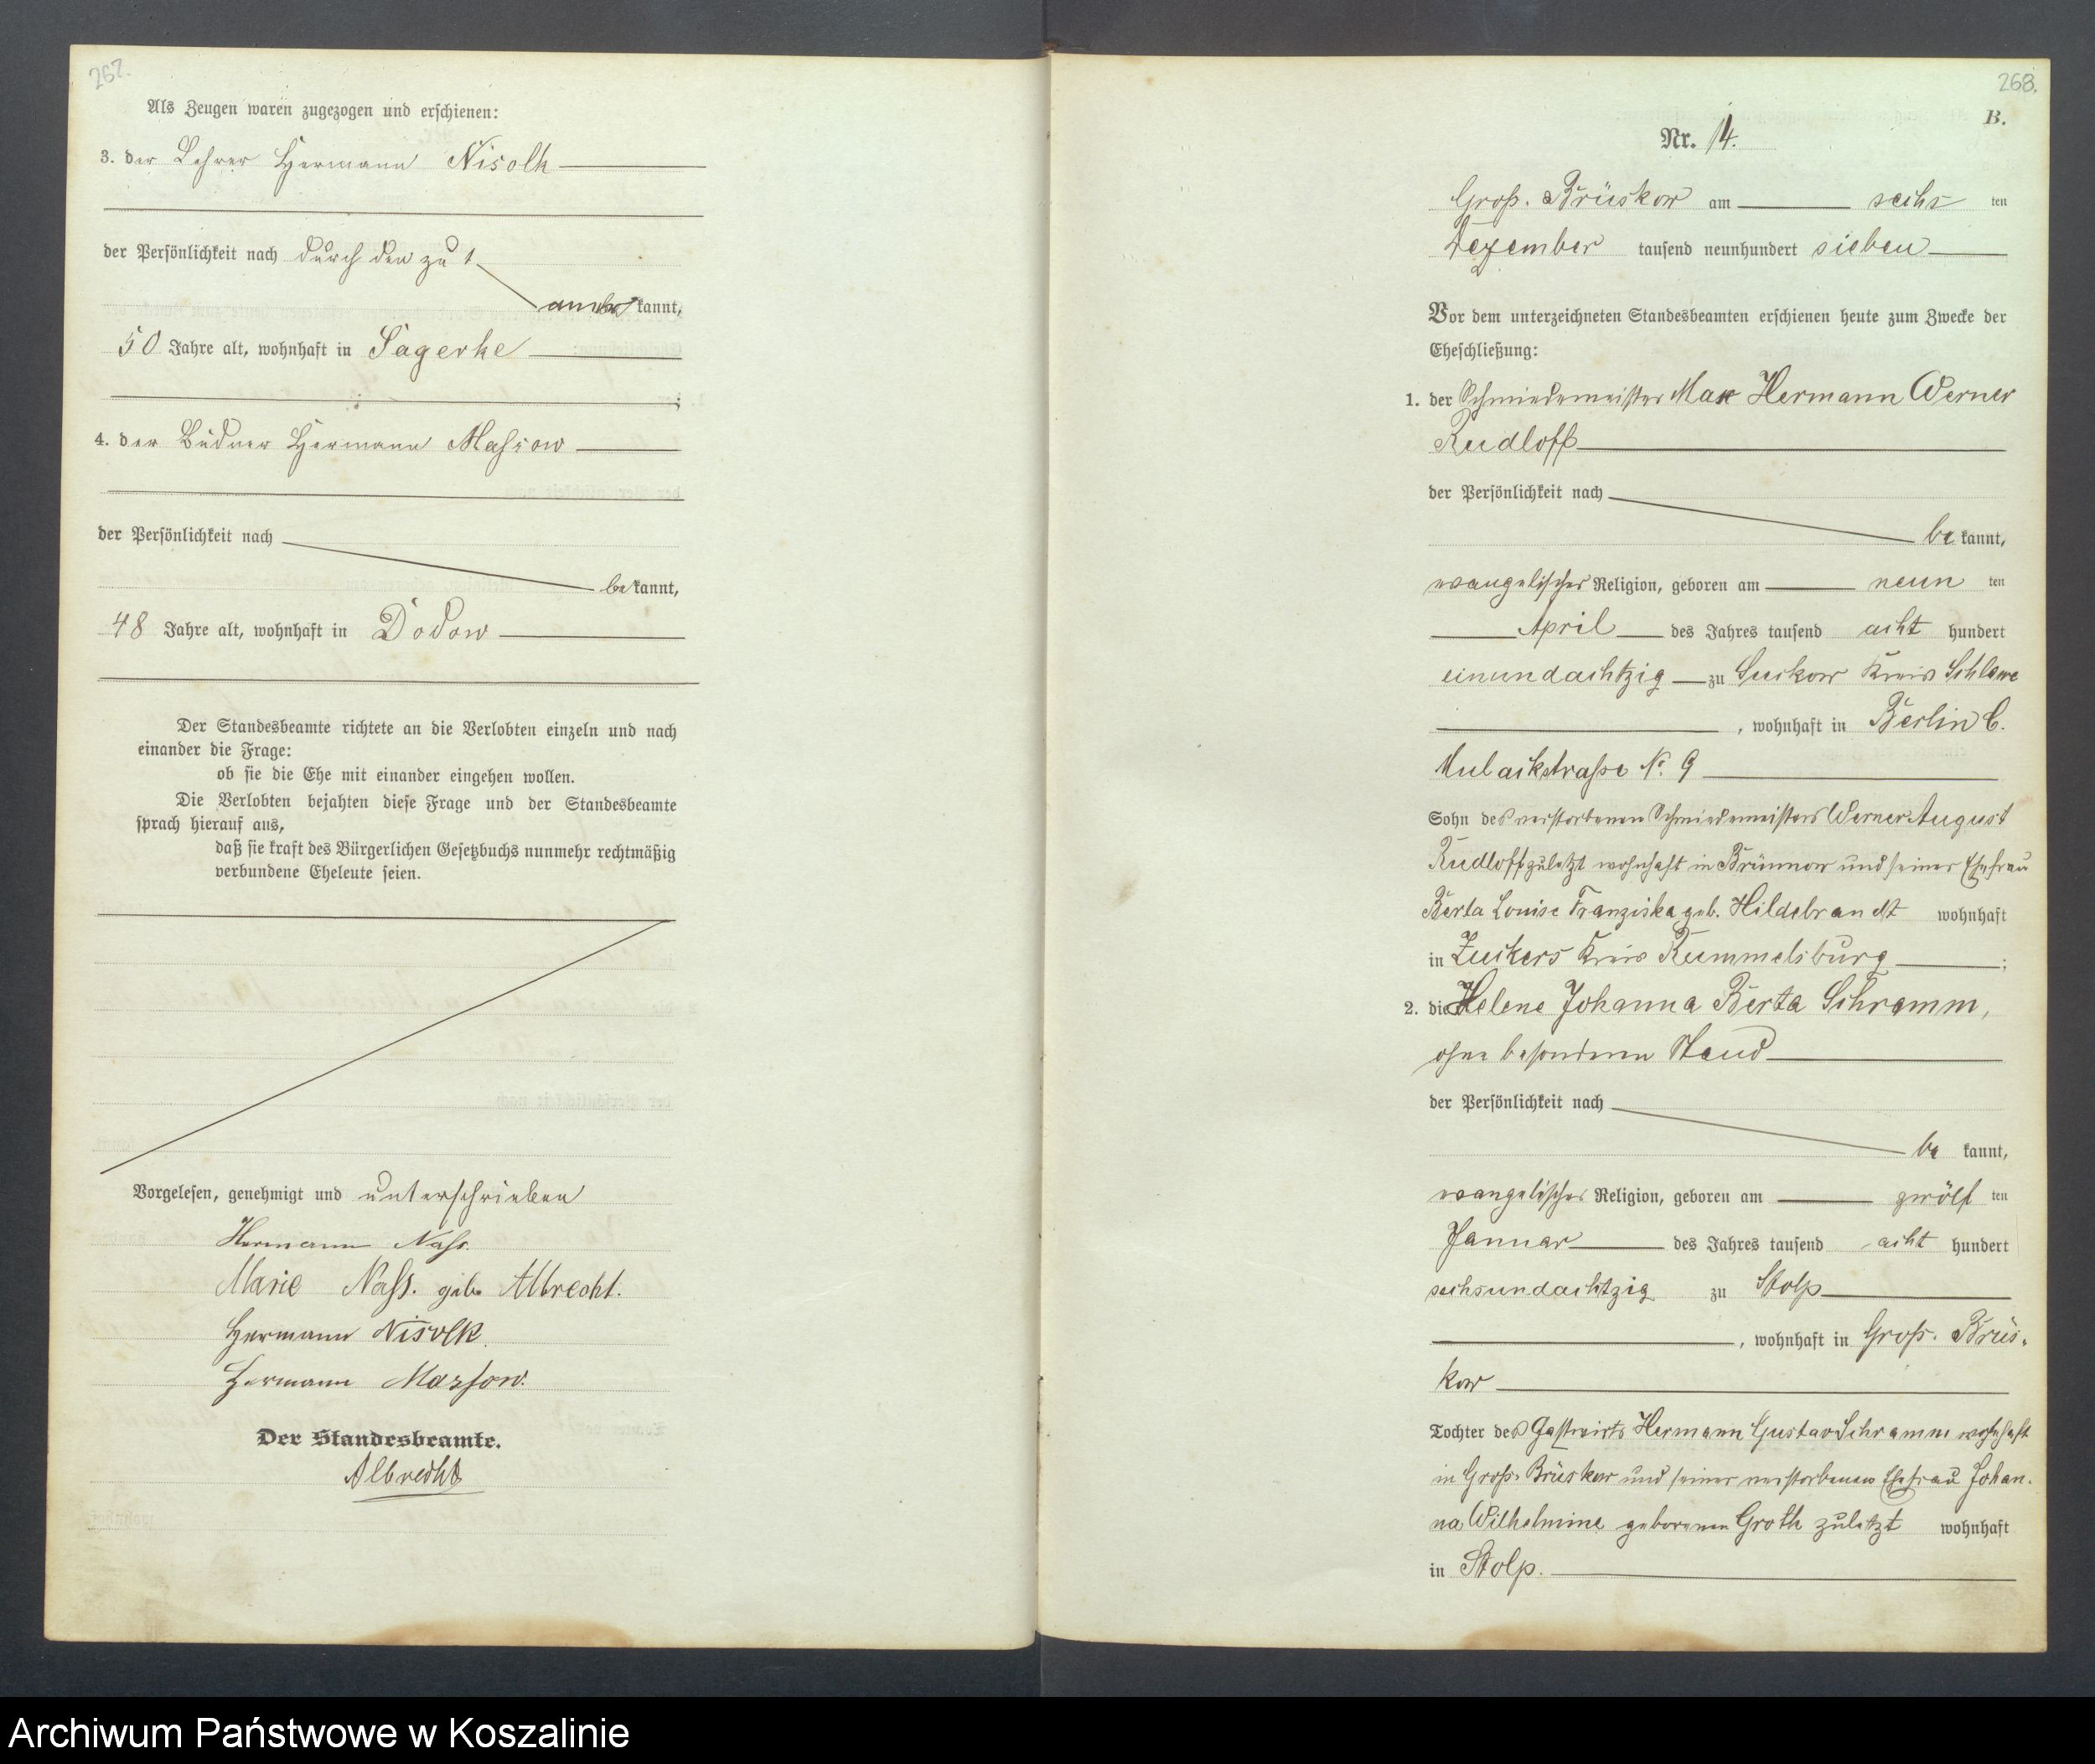 267.
Als Zeugen waren zugezogen und erschienen:
3. der Lehrer Hermann Nisolk
der Persönlichkeit nach durch den zu 1
anerkannt,
50 Jahre alt, wohnhaft in Sagerke
;
4. der Büdner Hermann Massow
der Persönlichkeit nach
bekannt,
48 Jahre alt, wohnhaft in Dodow
Der Standesbeamte richtete an die Verlobten einzeln und nach
einander die Frage:
ob sie die Ehe mit einander eingehen wollen.
Die Verlobten bejahten diese Frage und der Standesbeamte
sprach hierauf aus,
daß sie kraft des Bürgerlichen Gesetzbuchs nunmehr rechtmäßig
verbundene Eheleute seien.
Vorgelesen, genehmigt und unterschrieben
Hermann Nass.
Marie Nass. geb. Albrecht.
Hermann Nisolk.
Hermann Massow.
Der Standesbeamte.
Albrecht
268.
B.
Nr. 14.
Groß-Brüskow am sechs ten
Dezember tausend neunhundert sieben
Vor dem unterzeichneten Standesbeamten erschienen heute zum Zwecke der
Eheschließung:
1. der Schmiedemeister Max Hermann Werner
Rudloff
der Persönlichkeit nach
bekannt,
evangelischer Religion, geboren am neun ten
April des Jahres tausend acht hundert
einundachtzig zu Suckow Kreis Schlawe
, wohnhaft in Berlin C.
Mulackstrasse No. 9
Sohn des verstorbenen Schmiedemeisters Werner August
Rudloff zuletzt wohnhaft in Brünnow und seiner Ehefrau
Berta Louise Franziska geb. Hildebrandt wohnhaft
in Zuckers Kreis Rummelsburg ;
2. die Helene Johanna Berta Schramm,
ohne besonderen Stand
der Persönlichkeit nach
bekannt,
evangelischer Religion, geboren am zwölf ten
Januar des Jahres tausend acht hundert
sechsundachtzig zu Stolp
, wohnhaft in Groß-Brüs-
kow
Tochter des Gastwirts Hermann Gustav Schramm wohnhaft
in Groß-Brüskow und seiner verstorbenen Ehefrau Johan-
na Wilhelmine geborenen Groth zuletzt wohnhaft
in Stolp.
Archiwum Państwowe w Koszalinie